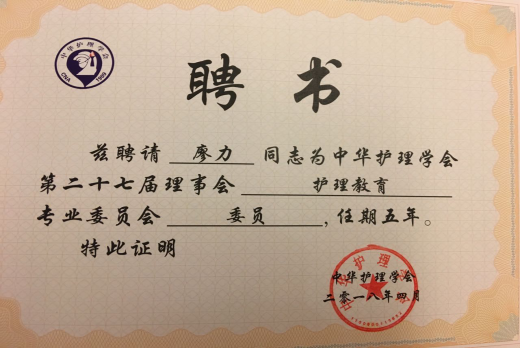 中华护理学会
CNA 1909
聘书
兹聘请 廖力 同志为中华护理学会
第二十七届理事会 护理教育
专业委员会 委员 ,任期五年。
特此证明
中华护理学会
二零一八年四月
中华护理学会